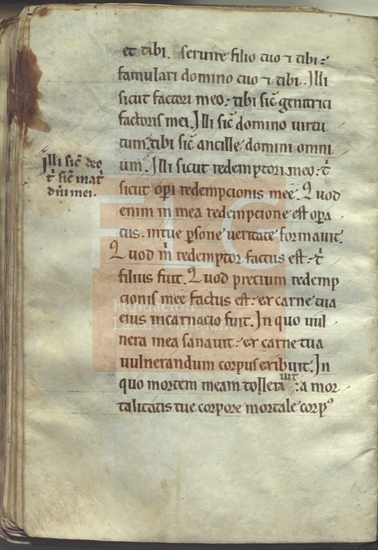 et tibi. seruire filio tuo et tibi:
famulari domino tuo et tibi. Illi
sicut factori meo: tibi sic genitrici
factoris mei. Illi sic domino uirtu
tum. tibi sic ancille domini omni
um. Illi sicut redemptori meo: t
sicut operi redempcionis mee. Quod
enim in mea redempcione est opera
tus. in tue persone ueritate formauit.
Quod m redemptor factus est: t
filius fuit. Quod precium redemp
cionis mee factus est: ex carne tua
eius incarnacio fuit. In quo uul
nera mea sanauit: ex carne tua
uulnerandum corpus exibuit. In
quo mortem meam tolleret: a mor
talitatis tue corpore mortale corp
Illi sic deo
t sic mat
dni mei.
FLG
Fundación
Lázaro Galdiano